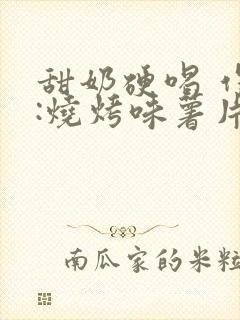 甜奶硬唱
:燒烤味薯片
南瓜家的米粒